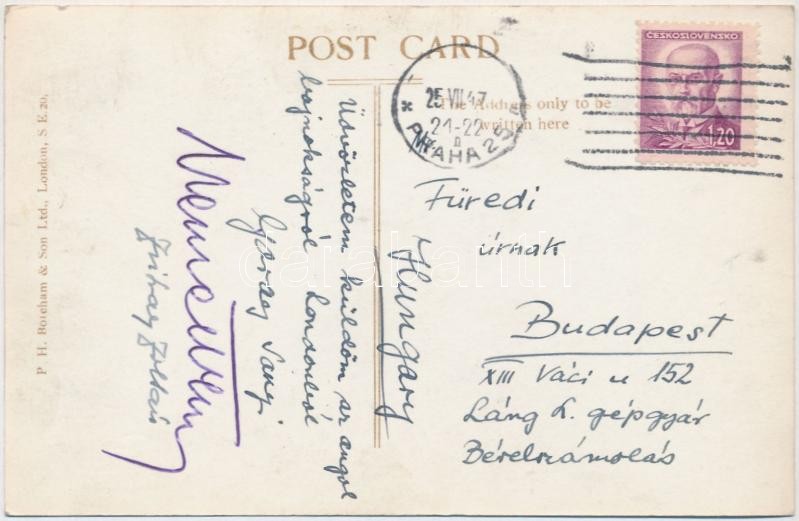 POST CARD
The Address only to be
written here
ČESKOSLOVENSKO
1.20
25 VII 47
21-22
PRAHA 25
Üdvözletem küldöm az angol
bajnokságról Londonból
Gárday Sanyi
Zoltán
Füredi
úrnak
Budapest
XIII Váci u 152
Láng L. gépgyár
Bérelszámolás
Hungary
P. H. Boreham & Son Ltd., London, S E 20.
darabanth